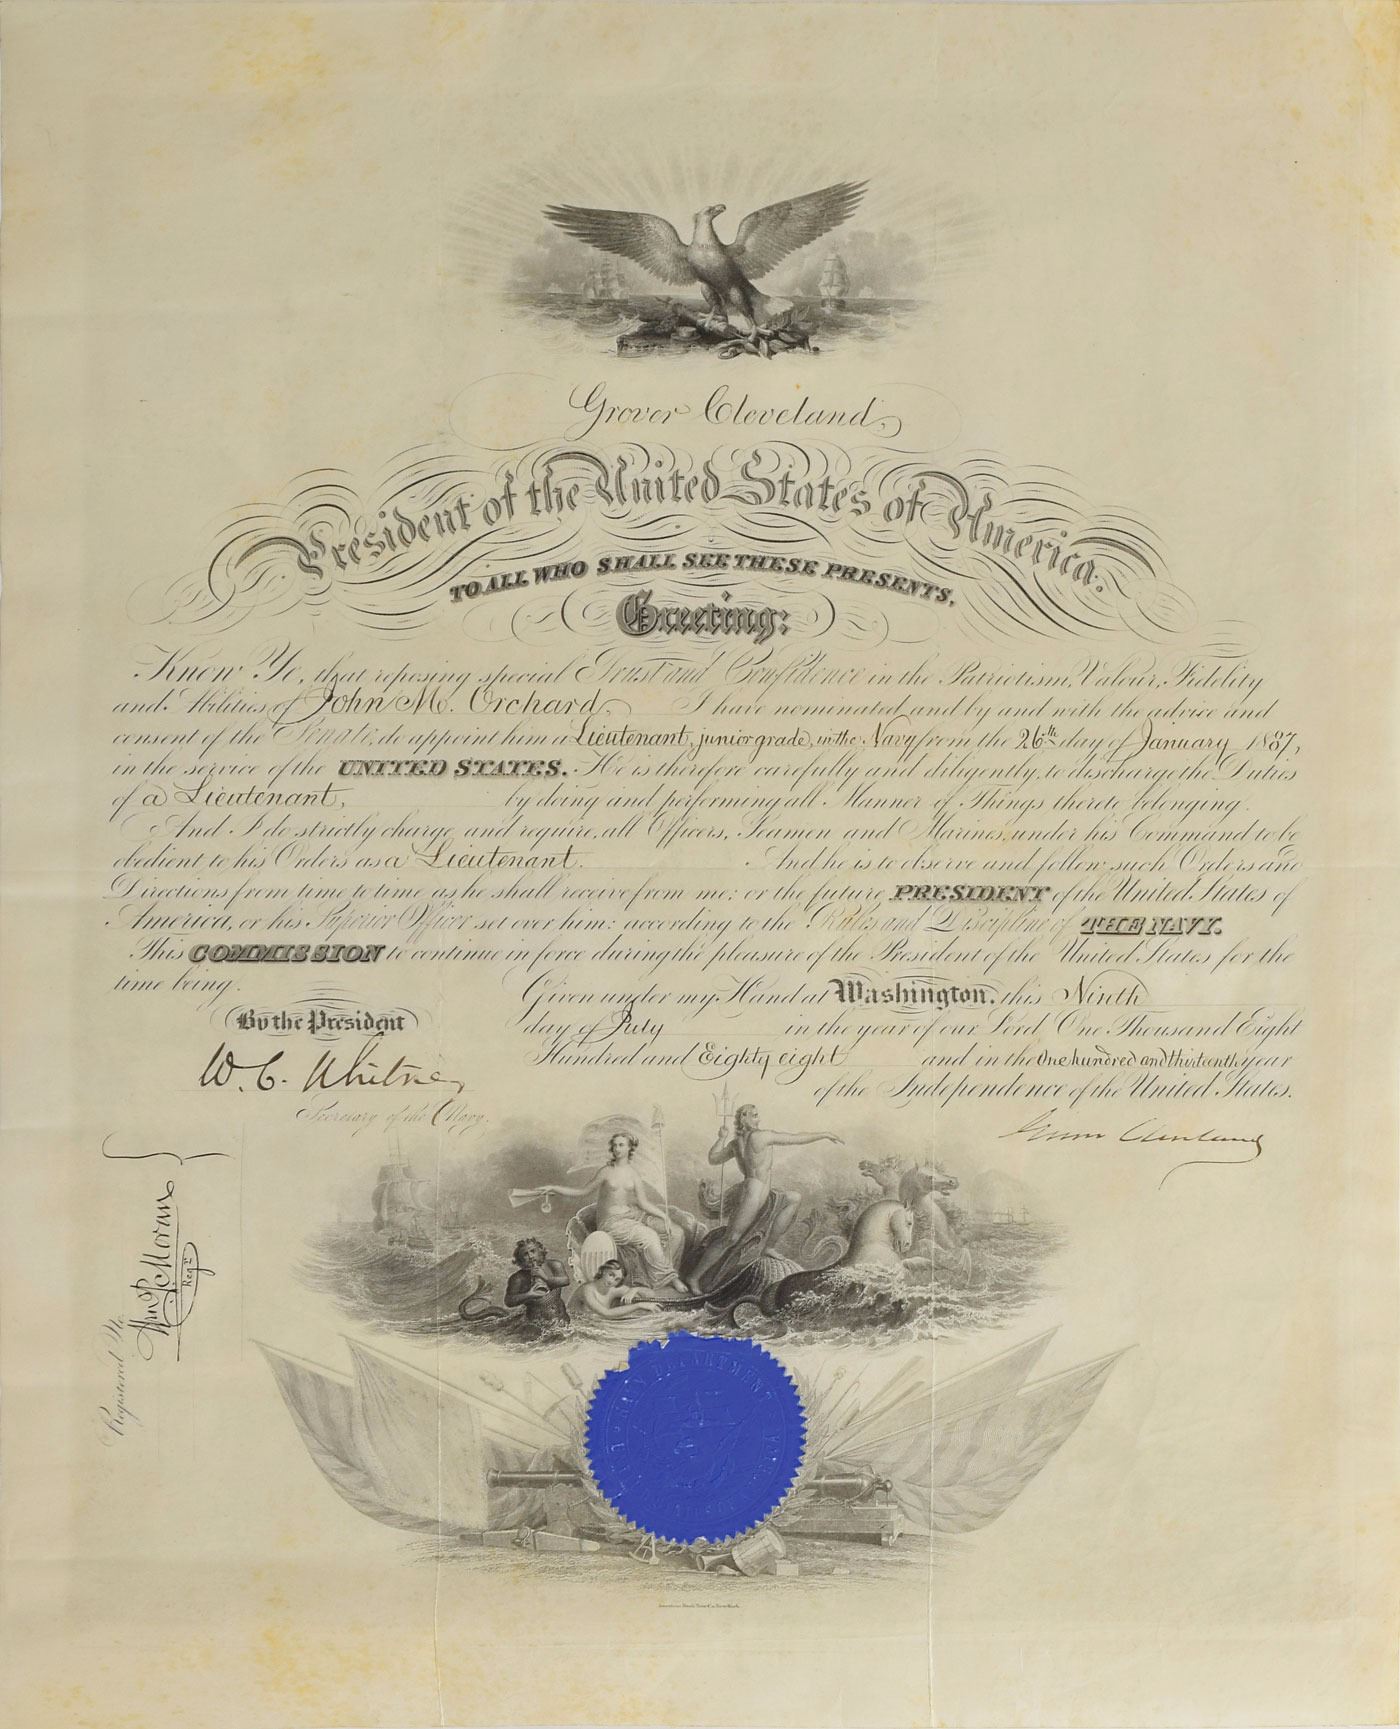 Grover Cleveland,
President of the United States of America.
TO ALL WHO SHALL SEE THESE PRESENTS,
Greeting:
Know Ye, that reposing special Trust and Confidence in the Patriotism, Valour, Fidelity
and Abilities of John M. Orchard, I have nominated and by and with the advice and
consent of the Senate, do appoint him a Lieutenant, junior grade, in the Navy from the 26th day of January 1887,
in the service of the UNITED STATES. He is therefore carefully and diligently, to discharge the Duties
of a Lieutenant, by doing and performing all Manner of Things thereto belonging.
And I do strictly charge, and require, all Officers, Seamen and Marines, under his Command to be
obedient to his Orders as a Lieutenant. And he is to observe and follow such Orders and
Directions from time to time as he shall receive from me: or the future PRESIDENT of the United States of
America, or his Superior Officer set over him: according to the Rules and Discipline of THE NAVY.
This COMMISSION to continue in force during the pleasure of the President of the United States for the
time being.
Given under my Hand at Washington, this Ninth
day of July in the year of our Lord One Thousand Eight
Hundred and Eighty eight and in the One hundred and thirteenth year
of the Independence of the United States.
By the President
W. C. Whitney
Secretary of the Navy.
Grover Cleveland
Registered No.
Wm P. Moran
Regr
NAVY DEPARTMENT
American Bank Note Co. New York.